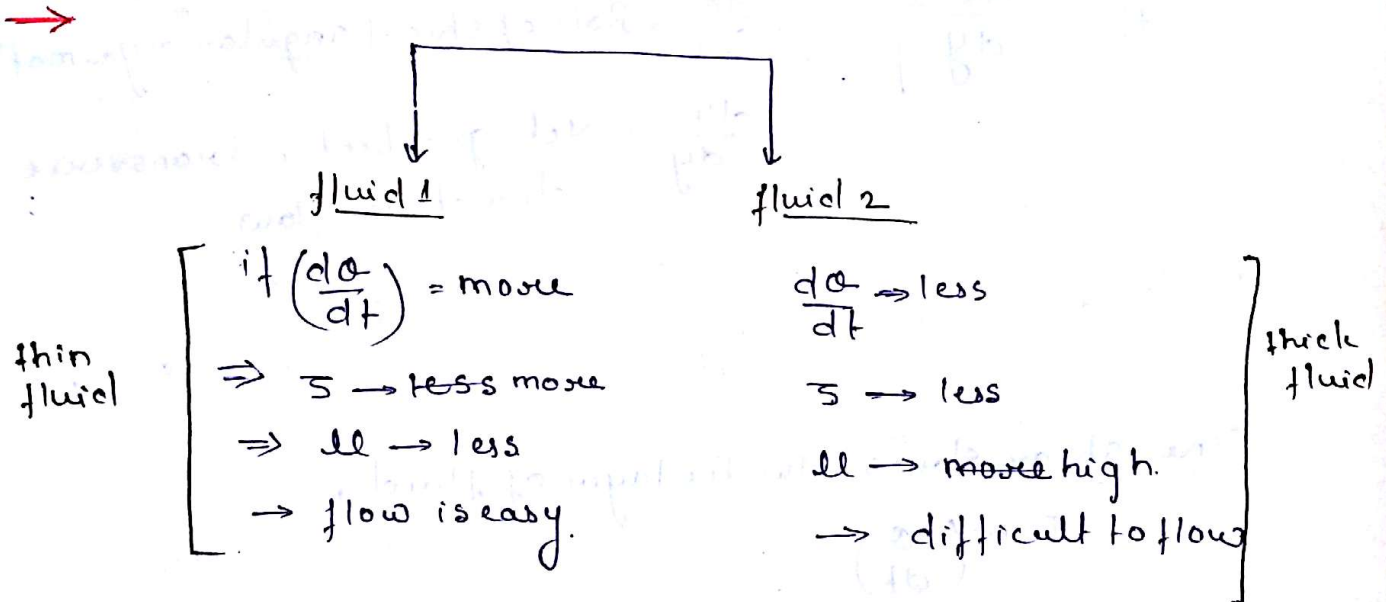 fluid 1
fluid 2
thin fluid
if (dθ/dt) = more
⇒ τ → less more
⇒ μ → less
→ flow is easy.
dθ/dt → less
τ → less
μ → more high.
→ difficult to flow
thick fluid